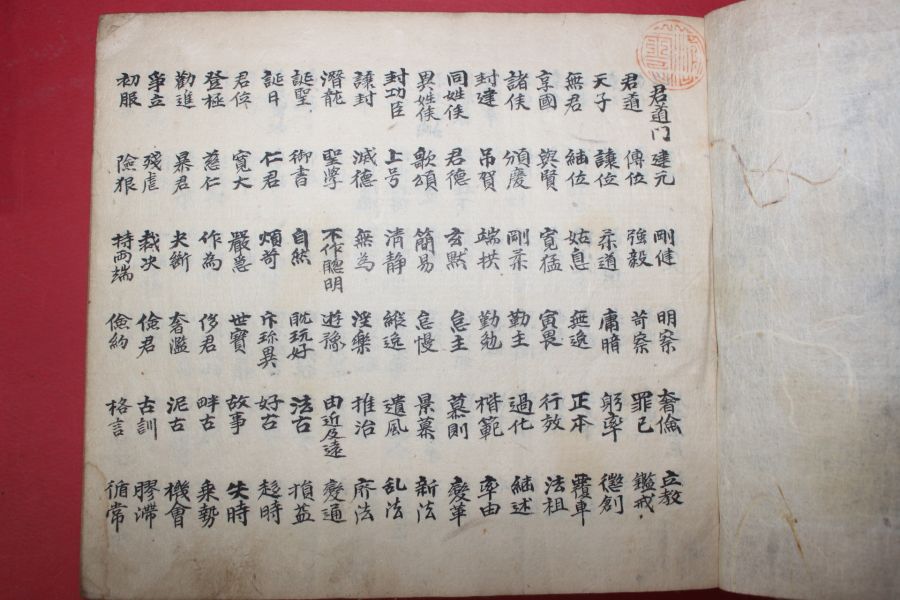 君道门 建元 剛健 明察 奢儉 立教
君道 傳位 強毅 苛察 罪己 鑑戒
天子 讓位 柔道 庸暗 躬率 懲創
無君 継位 姑息 無逸 正本 覆車
享國 與賢 寛猛 寅畏 行效 法祖
諸侯 頒慶 剛柔 勤主 過化 継述
封建 吊賀 端拱 勤勉 楷範 率由
同姓侯 君德 玄默 怠主 慕則 變革
異姓侯 歌頌 簡易 怠慢 景慕 新法
封功臣 上号 清静 縱逸 遺風 乱法
讓封 滅德 無為 淫樂 推治 廢法
潛龍 聖學 不作聰明 遊豫 由近及遠 變通
誕聖 御書 自然 耽玩好 法古 損益
誕日 仁君 煩苛 斥珎異 好古 趁時
寛大 嚴急 世寶 故事 失時
登極 慈仁 作為 侈君 畔古 乘勢
勸進 暴君 夬断 奢濫 泥古 機會
爭立 殘虐 裁决 儉君 古訓 膠滯
初服 險狠 持兩端 儉約 格言 循常